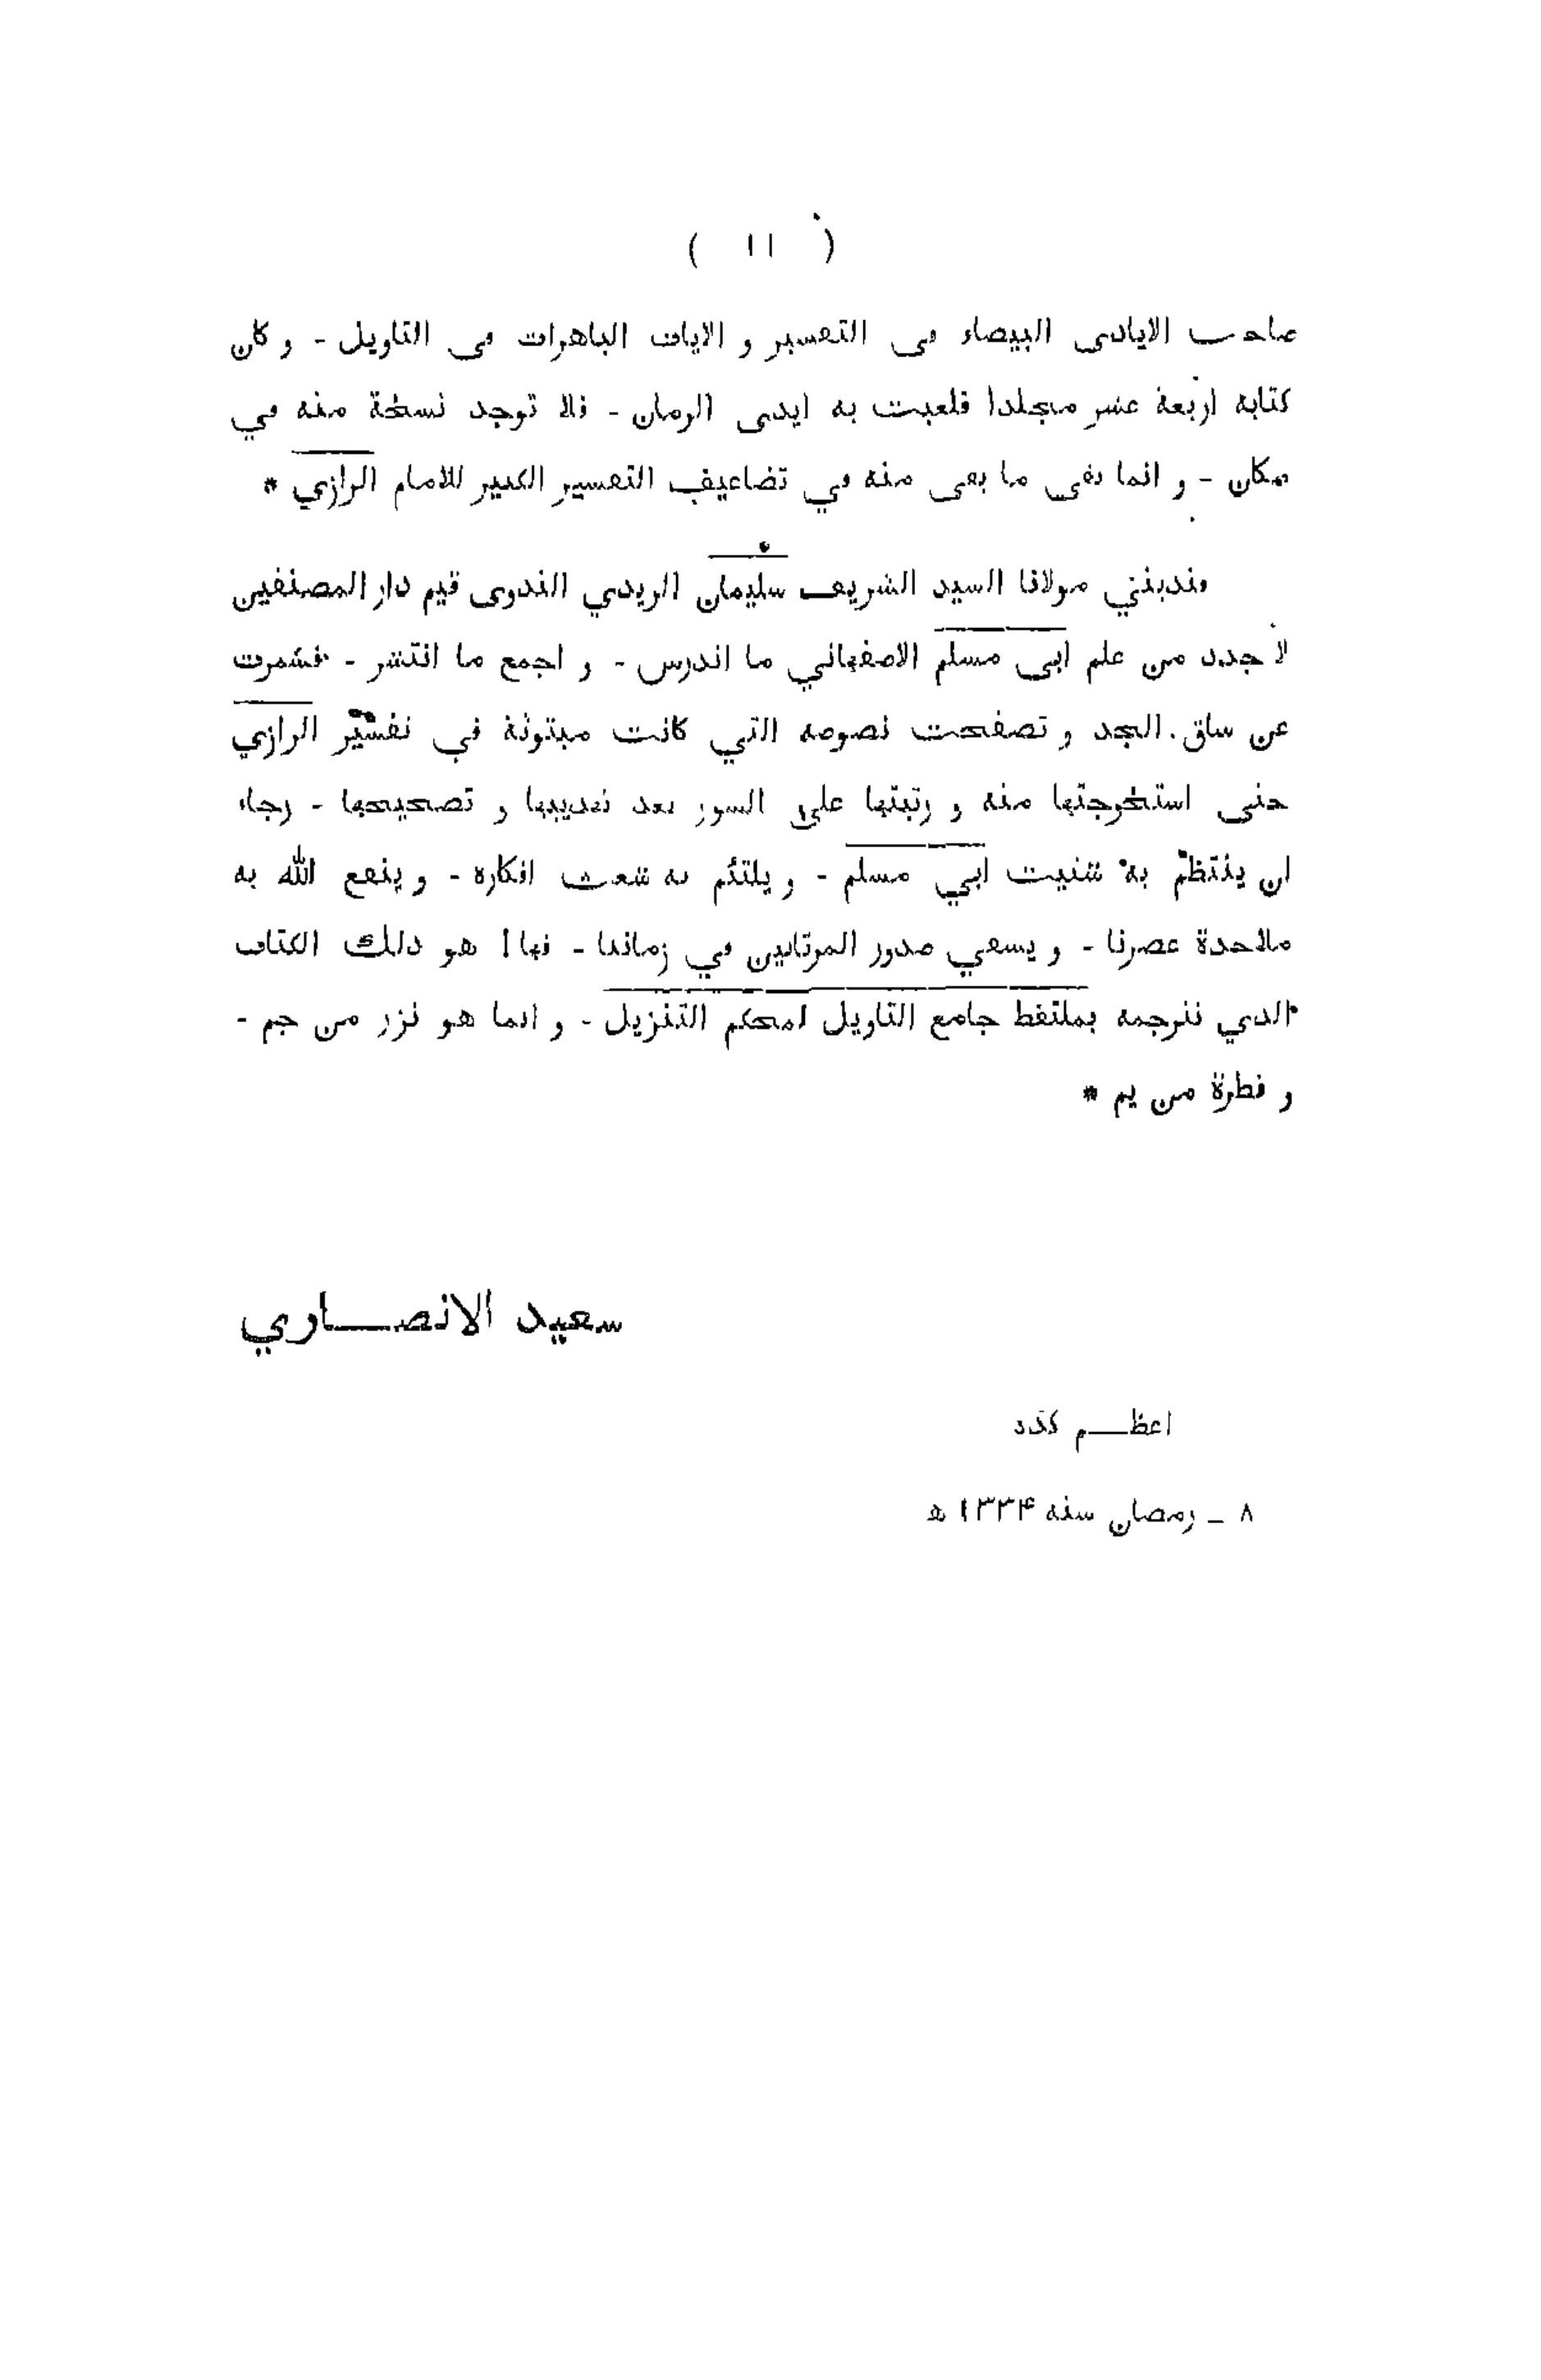 ( ١١ )
صاحب الايادى البيضاء فى التفسير و الايات الباهرات فى التاويل - و كان
كتابه اربعة عشر مجلدا فلعبت به ايدى الزمان - فلا توجد نسخة منه في
مكان - و انما بقى ما بقى منه في تضاعيف التفسير الكبير للامام الرازي *
فندبني مولانا السيد الشريف سليمان الزيدي الندوى قيم دار المصنفين
لاجدد من علم ابى مسلم الاصفهاني ما اندرس - و اجمع ما انتشر - فشمرت
عن ساق الجد و تصفحت نصوصه التي كانت مبثوثة في تفسير الرازي
حتى استخرجتها منه و رتبتها على السور بعد تهذيبها و تصحيحها - رجاء
ان ينتظم به شتيت ابي مسلم - و يلتئم به شعث افكاره - و ينفع الله به
ملاحدة عصرنا - و يشفي صدور المرتابين في زماننا - فها! هو ذلك الكتاب
الذي نترجمه بملتقط جامع التاويل لمحكم التنزيل - و انما هو نزر من جم -
و قطرة من يم *
سعيد الانصاري
اعظم كده
٨ - رمضان سنه ١٣٣۴ ه